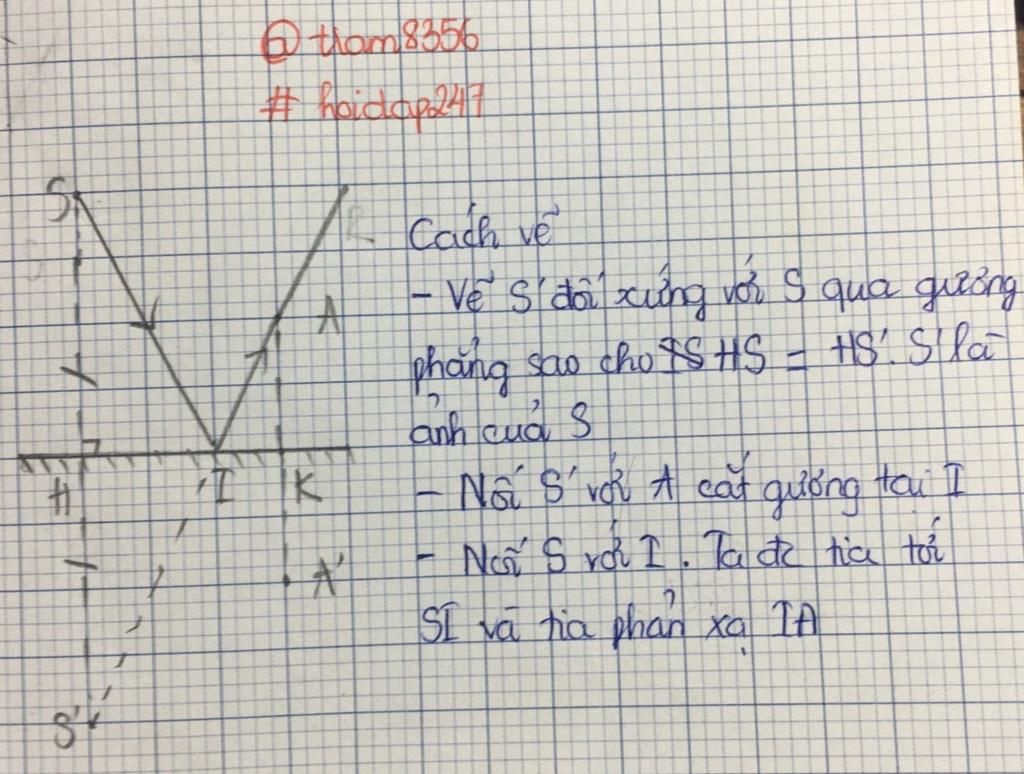 @ tlam8356
# hoidap247
S
R
Cách vẽ
A
- Vẽ S' đối xứng với S qua gương
phẳng sao cho HS = HS'. S' là
ảnh của S
H
I
K
- Nối S' với A cắt gương tại I
A'
- Nối S với I. Ta đc tia tới
SI và tia phản xạ IA
S'